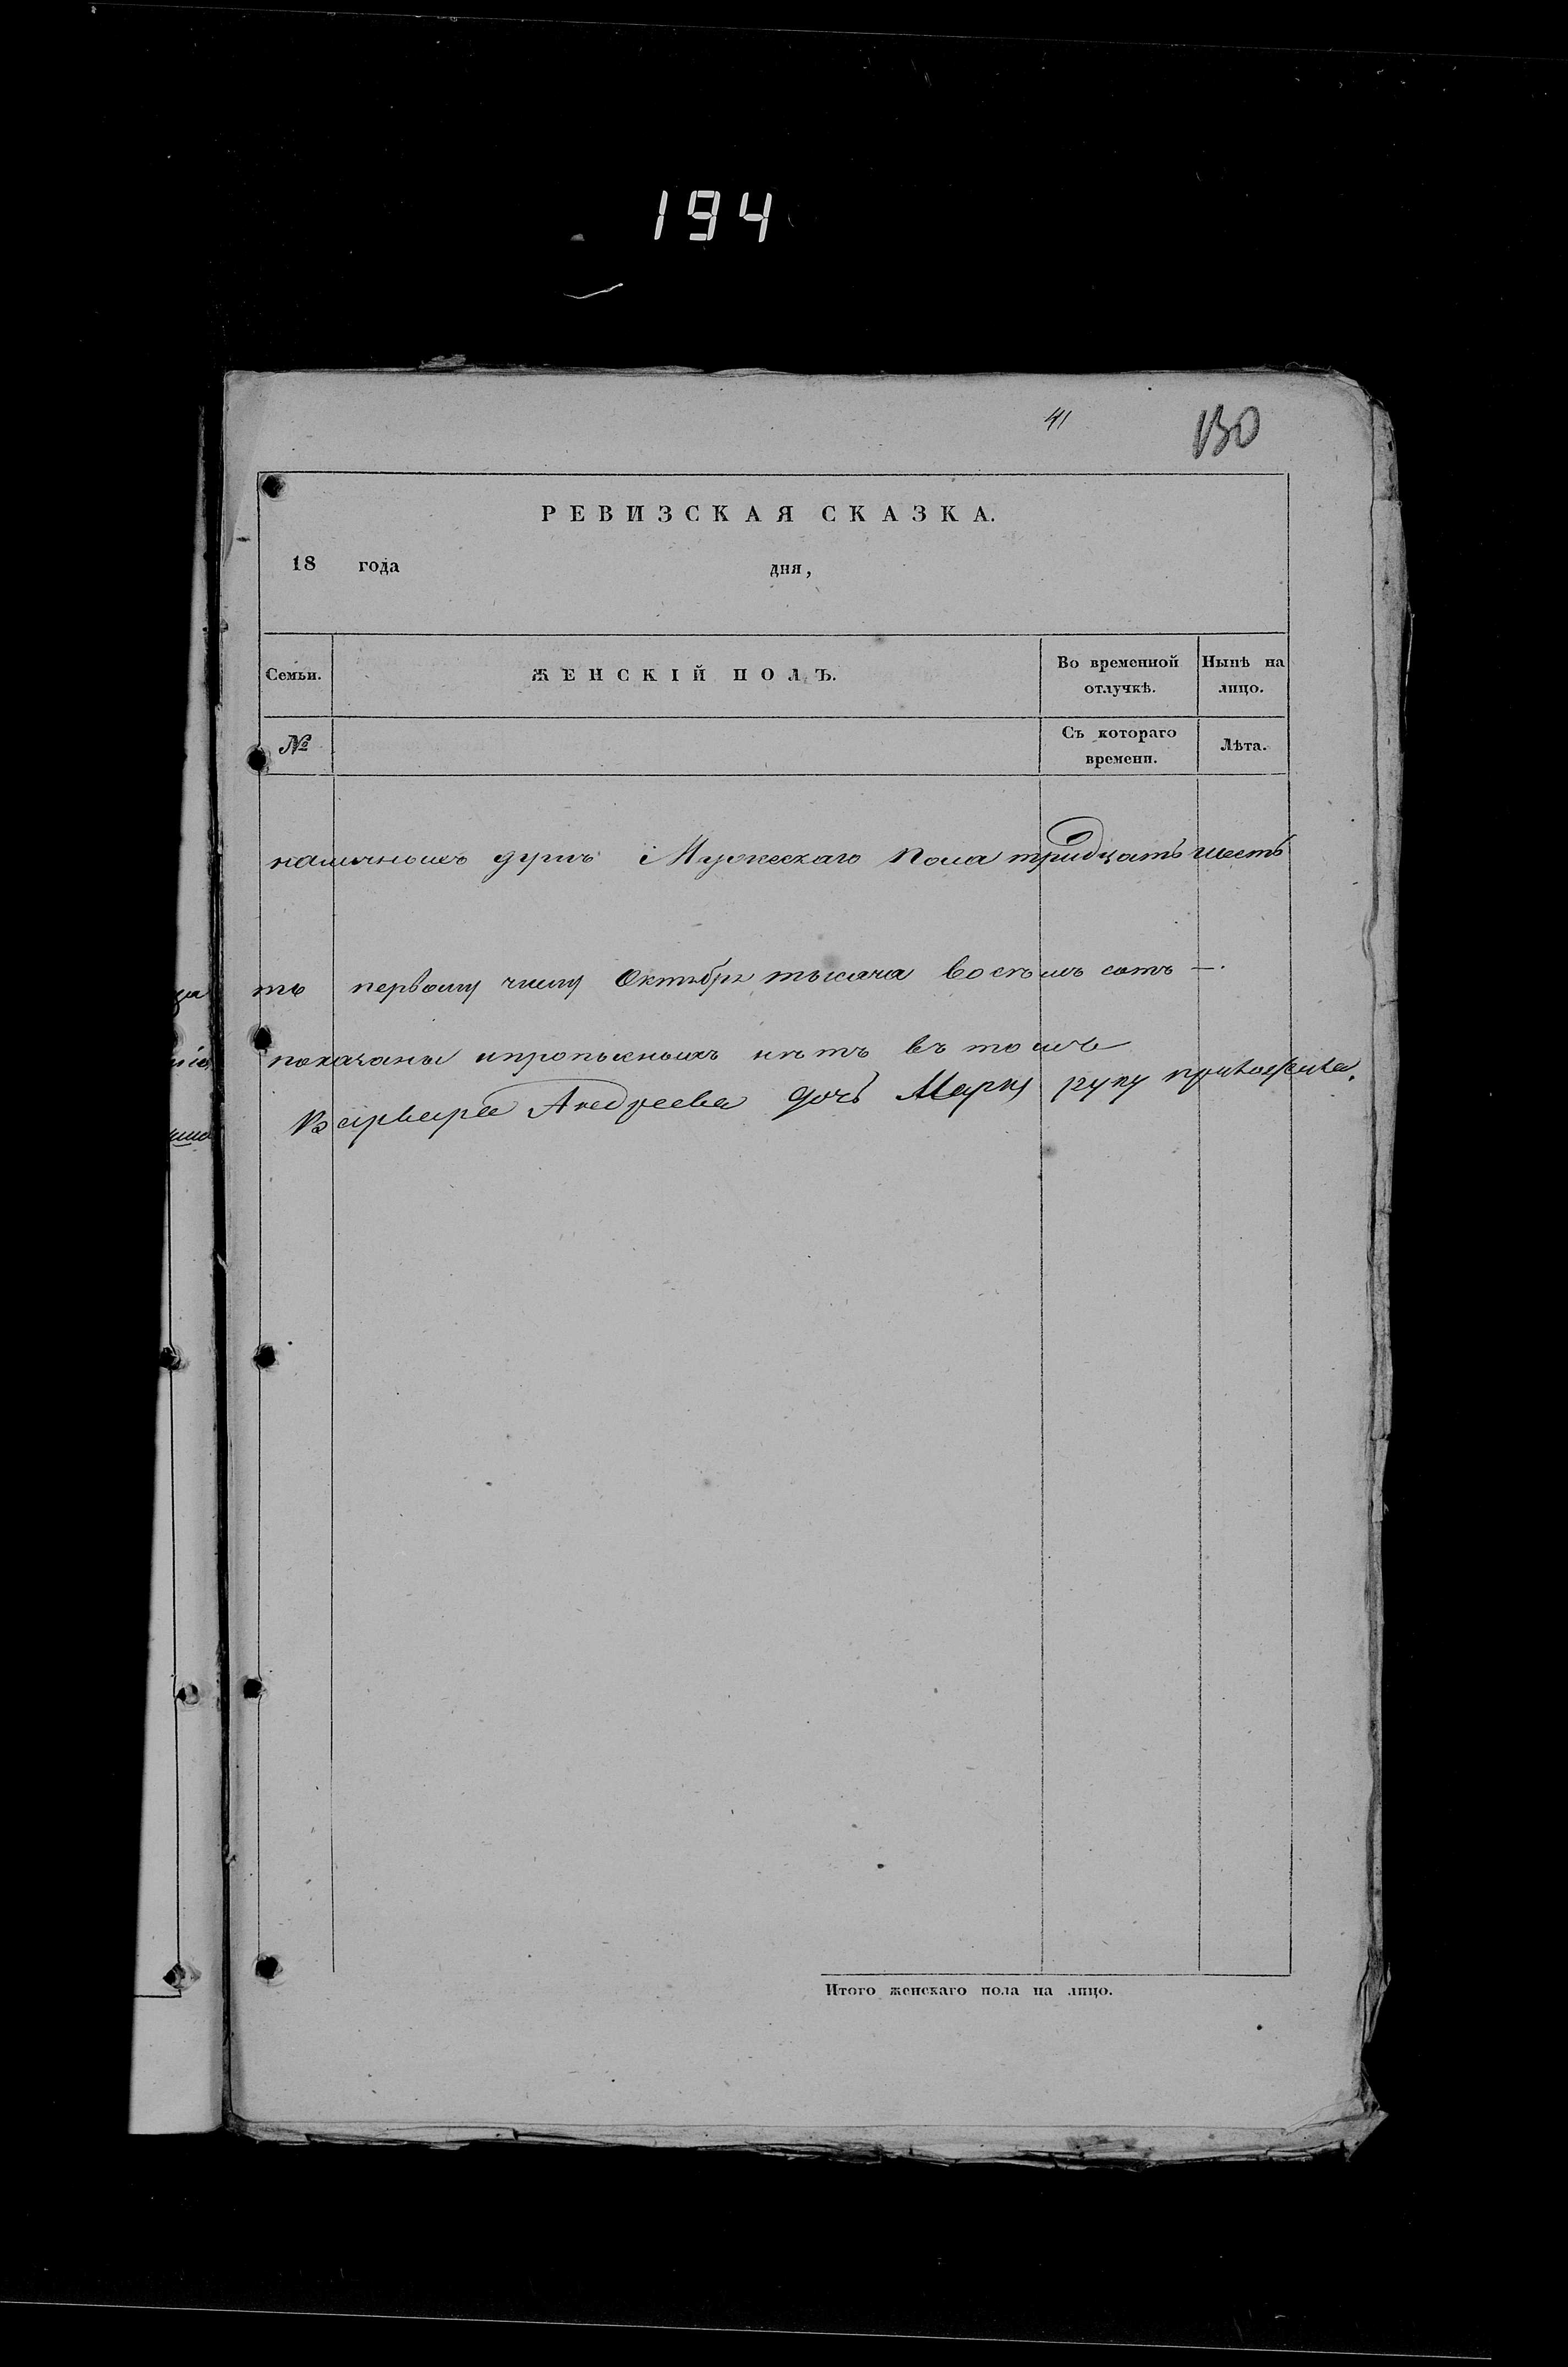 194
41
130
РЕВИЗСКАЯ СКАЗКА.
18 года дня,
Семьи. ЖЕНСКІЙ ПОЛЪ. Во временной отлучкѣ. Нынѣ на лицо.
№ Съ котораго времени. Лѣта.
наличныхъ душъ Мужескаго пола тридцать шесть
то первому числу Октября тысяча восемь сотъ —.
показаны ипропысныхъ нѣтъ въ томъ
Варвара Андреева дочь руку приложила.
Итого женскаго пола на лицо.